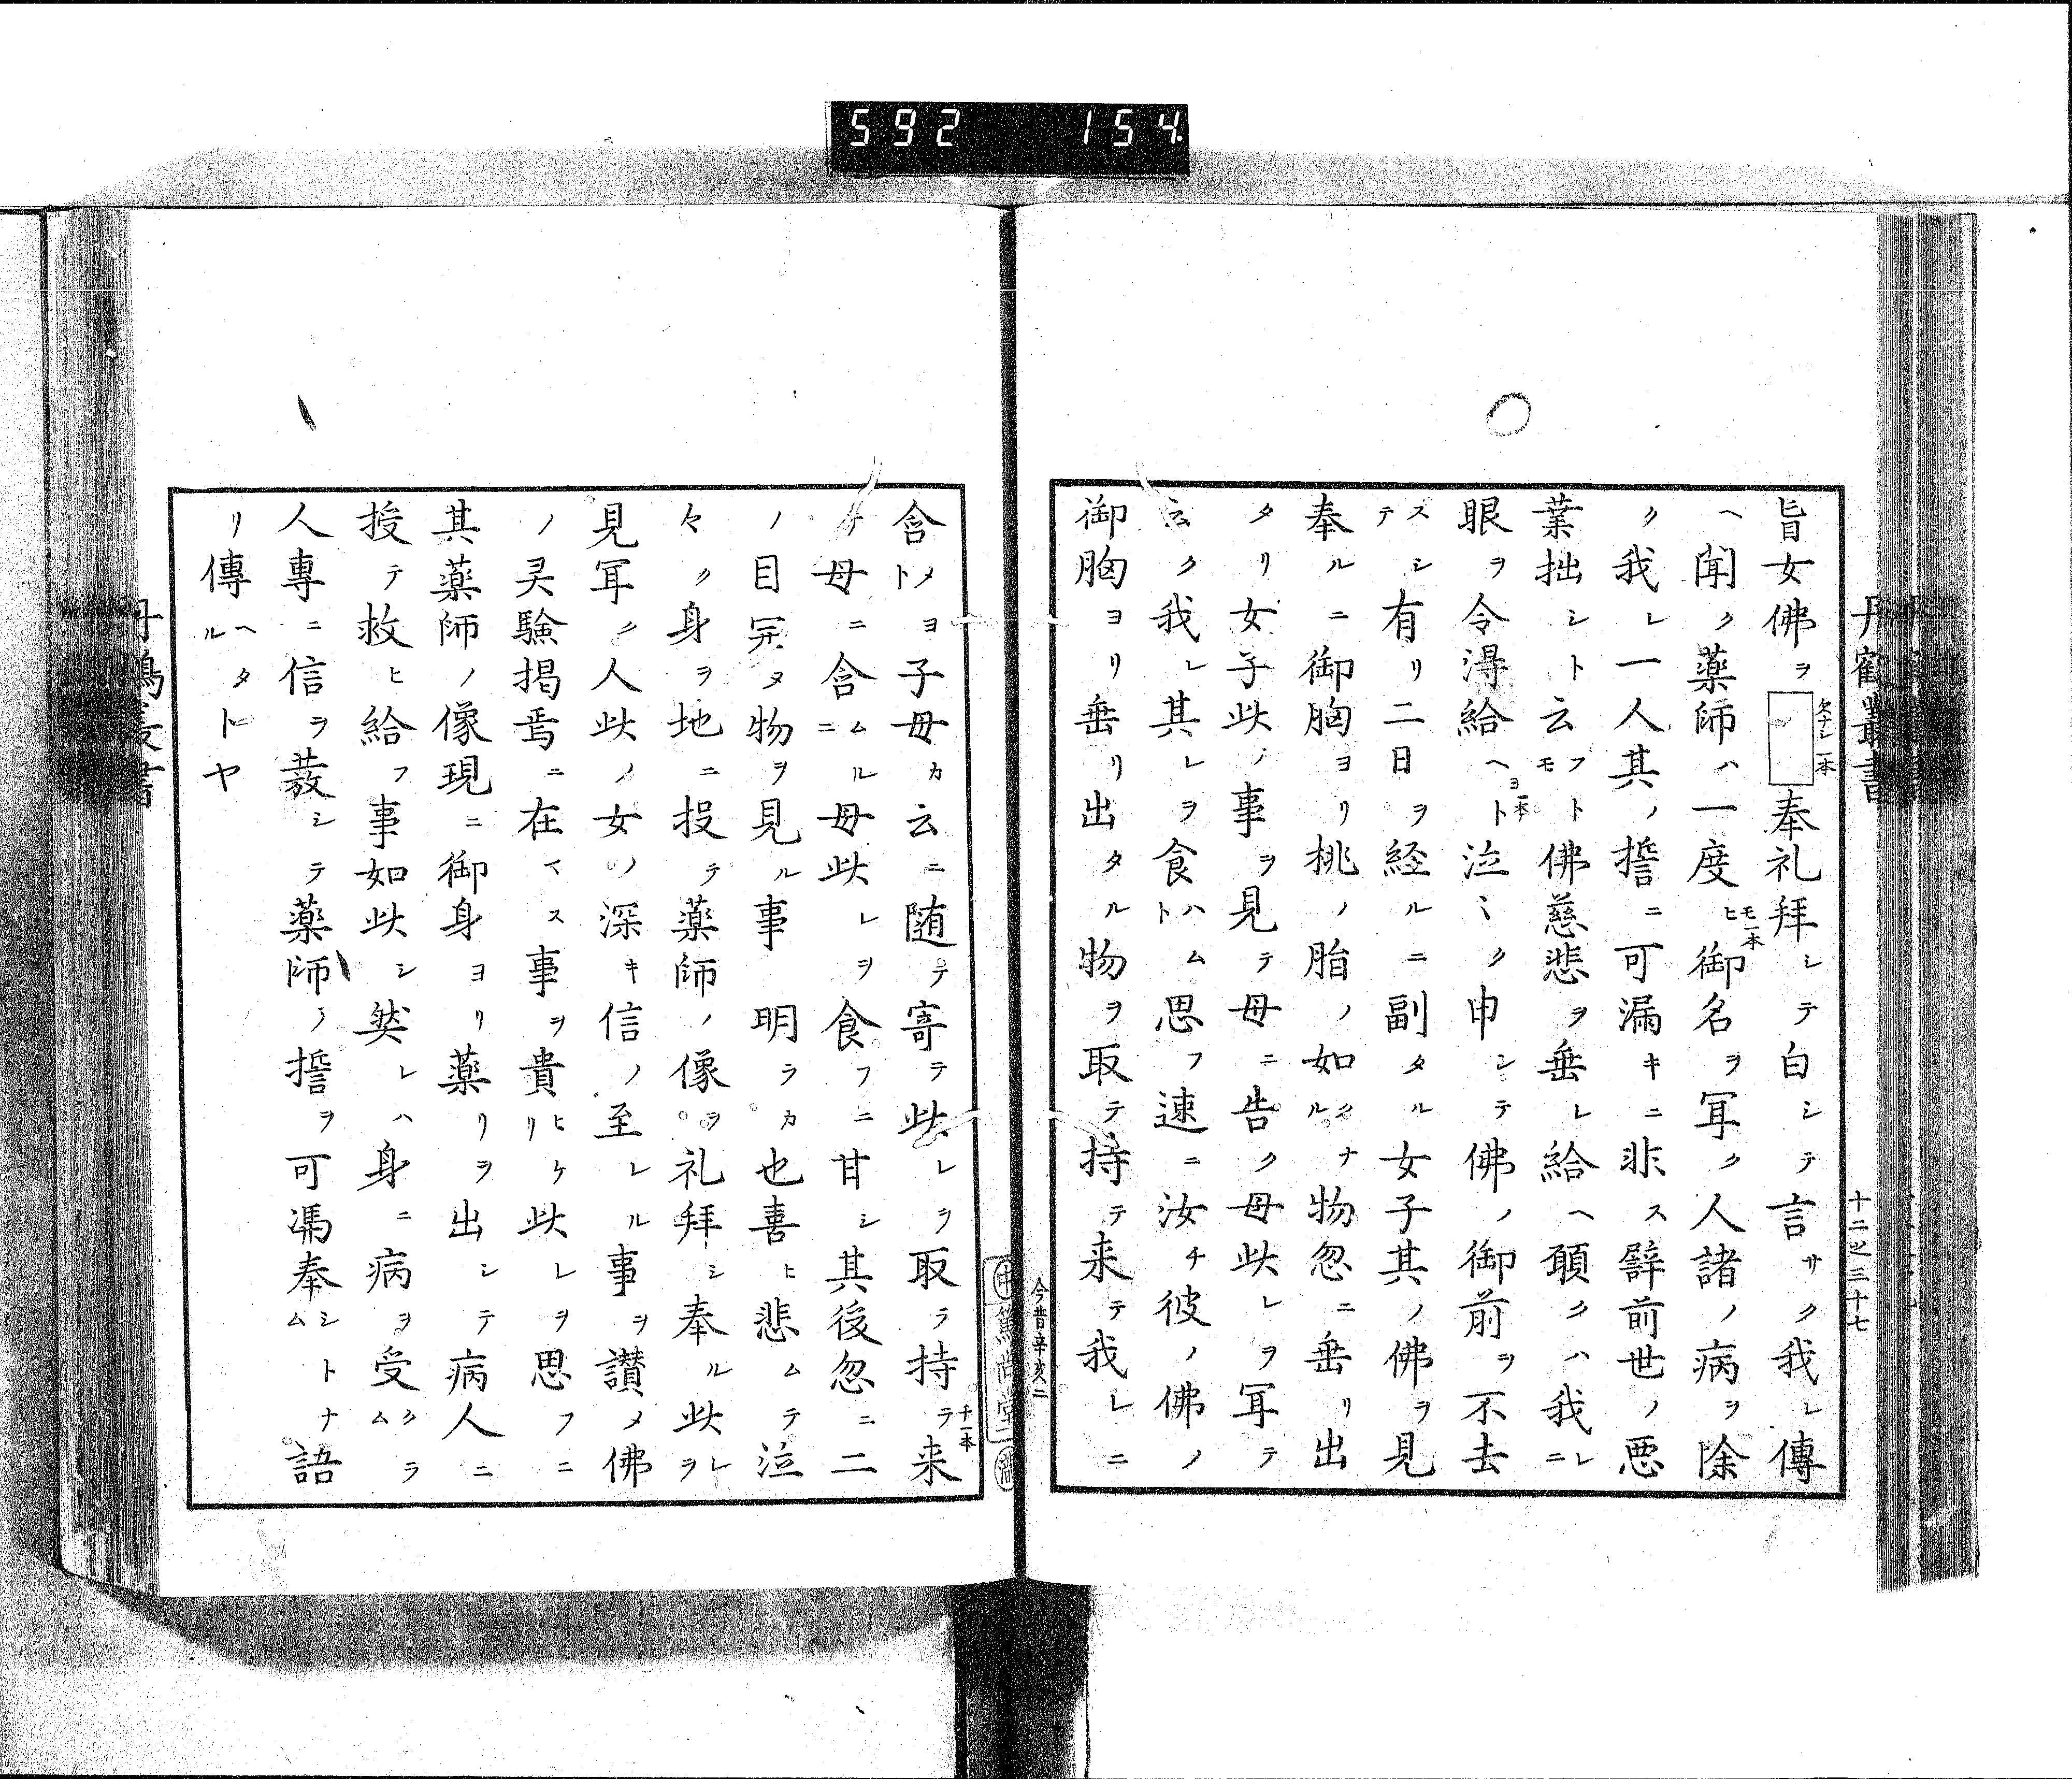 592 154
丹鶴叢書
十二之三十七
旨女佛ヲ□欠ナシ一本奉礼拜レテ白シテ言サク我レ傳
ヘ聞ク薬師ハ一度ヒモ一本御名ヲ耳ク人諸ノ病ヲ除
ク我レ一人其ノ誓ニ可漏キニ非ス譬前世ノ悪
業拙シト云フトモ佛慈悲ヲ垂レ給ヘ願クハ我レニ
眼ヲ令淂給ヘヨ一本ト泣〻ク申シテ佛ノ御前ヲ不去
スシテ有リ二日ヲ経ルニ副タル女子其ノ佛ヲ見
奉ルニ御胸ヨリ桃ノ脂ノ如クナル物忽ニ垂リ出
タリ女子此ノ事ヲ見テ母ニ告ク母此レヲ耳テ
云ク我レ其レヲ食ハムト思フ速ニ汝チ彼ノ佛ノ
御胸ヨリ垂リ出タル物ヲ取テ持テ来テ我レニ
今昔辛亥二
含メヨト子母カ云ニ随テ寄テ此レヲ取ラ持ラチ一本来
テ母ニ含ムルニ母此レヲ食フニ甘シ其後忽ニ二
ノ目開ヌ物ヲ見ル事 明ラカ也喜ヒ悲ムテ泣
々ク身ヲ地ニ投テ薬師ノ像ヲ礼拜シ奉ル此レヲ
見耳ク人此ノ女ノ深キ信ノ至レル事ヲ讃メ佛
ノ灵驗掲焉ニ在マス事ヲ貴ヒケリ此レヲ思フニ
其薬師ノ像現ニ御身ヨリ薬リヲ出シテ病人ニ
授テ救ヒ給フ事如此シ然レハ身ニ病ヲ受クラム
人專ニ信ヲ發シテ薬師ノ誓ヲ可馮奉シトナム語
リ傳ヘタルトヤ